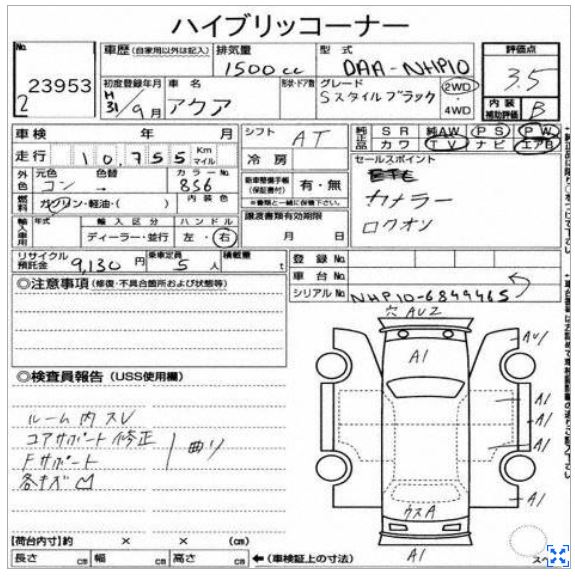 ハイブリッコーナー
No. 車歴 (自家用以外は記入) 排気量 型式 評価点
23953 1500cc DAA-NHP10 3.5
2
初度登録年月 車名 形状・ドア数 グレード 2WD 内装
H31/9月 アクア Sスタイルブラック ・4WD 補助評価 B
車検 年 月 シフト AT 純正品 SR 純AW PS PW
走行 10,755 Km マイル カワ TV ナビ エアB
冷房 セールスポイント
外色 元色 色替 カラーNo.
コン → 856 (保証書付) 有・無 カナラー
燃料 ガソリン・軽油・( ) 内装色 ※書類と一緒に保管下さい。 ロクオン
輸入車用 年式 輸入区分 ハンドル 譲渡書類有効期限
ディーラー・並行 左・右 月 日
リサイクル預託金 9,130円 乗車定員 5人 積載量 t 登録No.
車台No.
◎注意事項 (修復・不具合箇所および状態等) シリアルNo. NHP10-6849465
穴 AU2
A1 AU1
◎検査員報告 (USS使用欄)
A1
ルーム内スレ A1
コアサポート修正 曲り A1
Fサポート
各キズ凹
A1
ウスA
【荷台内寸】約 × × (cm)
A1
長さ cm 幅 cm 高さ cm ←(車検証上の寸法) スペ